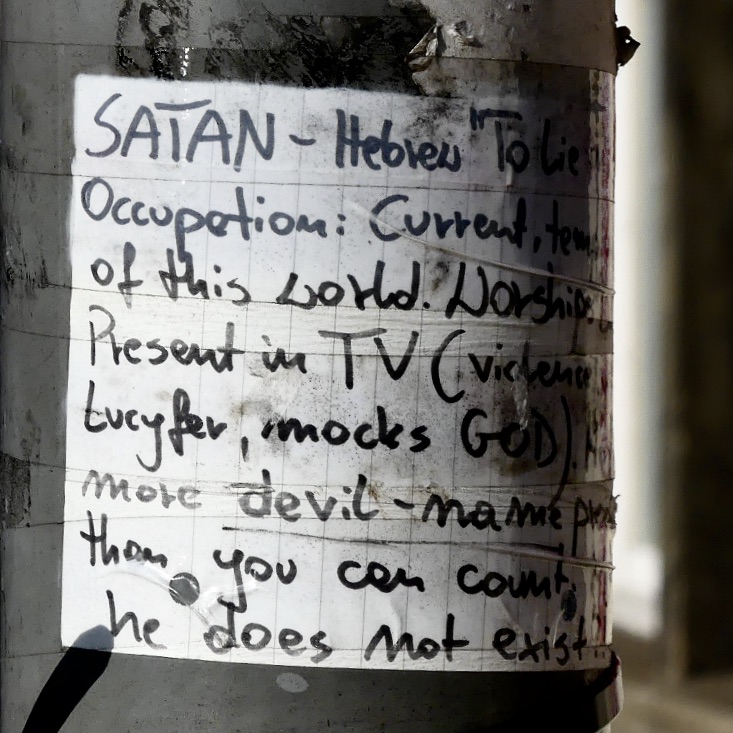 SATAN - Hebrew "To lie
Occupation: Current, tem
of this world. Worship
Present in TV (violence
Lucyfer, mocks GOD).
more devil-name
than you can count.
he does not exist.